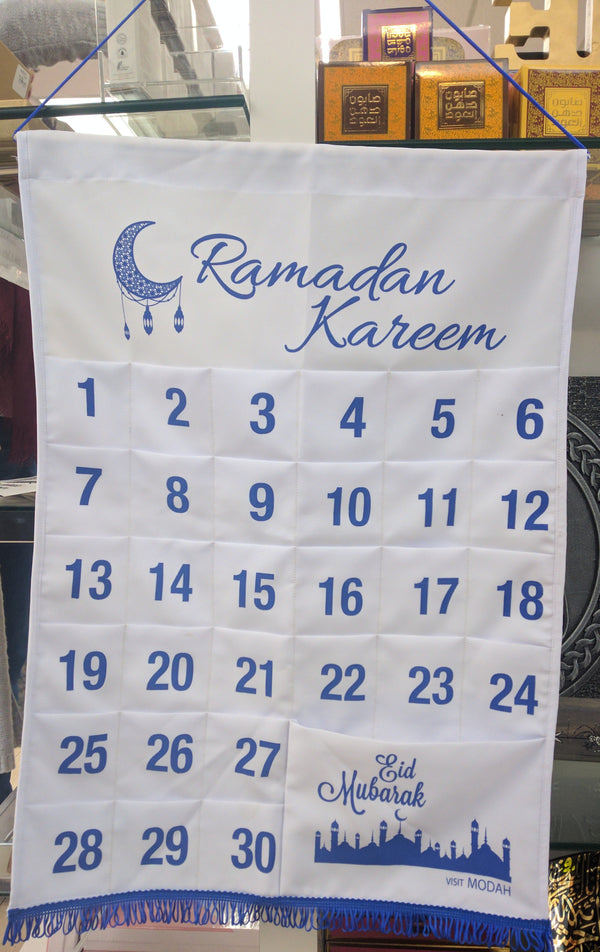 صابون
دهن
العود
صابون
دهن
العود
صابون
دهن
العود
Ramadan
Kareem
1 2 3 4 5 6
7 8 9 10 11 12
13 14 15 16 17 18
19 20 21 22 23 24
25 26 27
28 29 30
Eid
Mubarak
VISIT MODAH